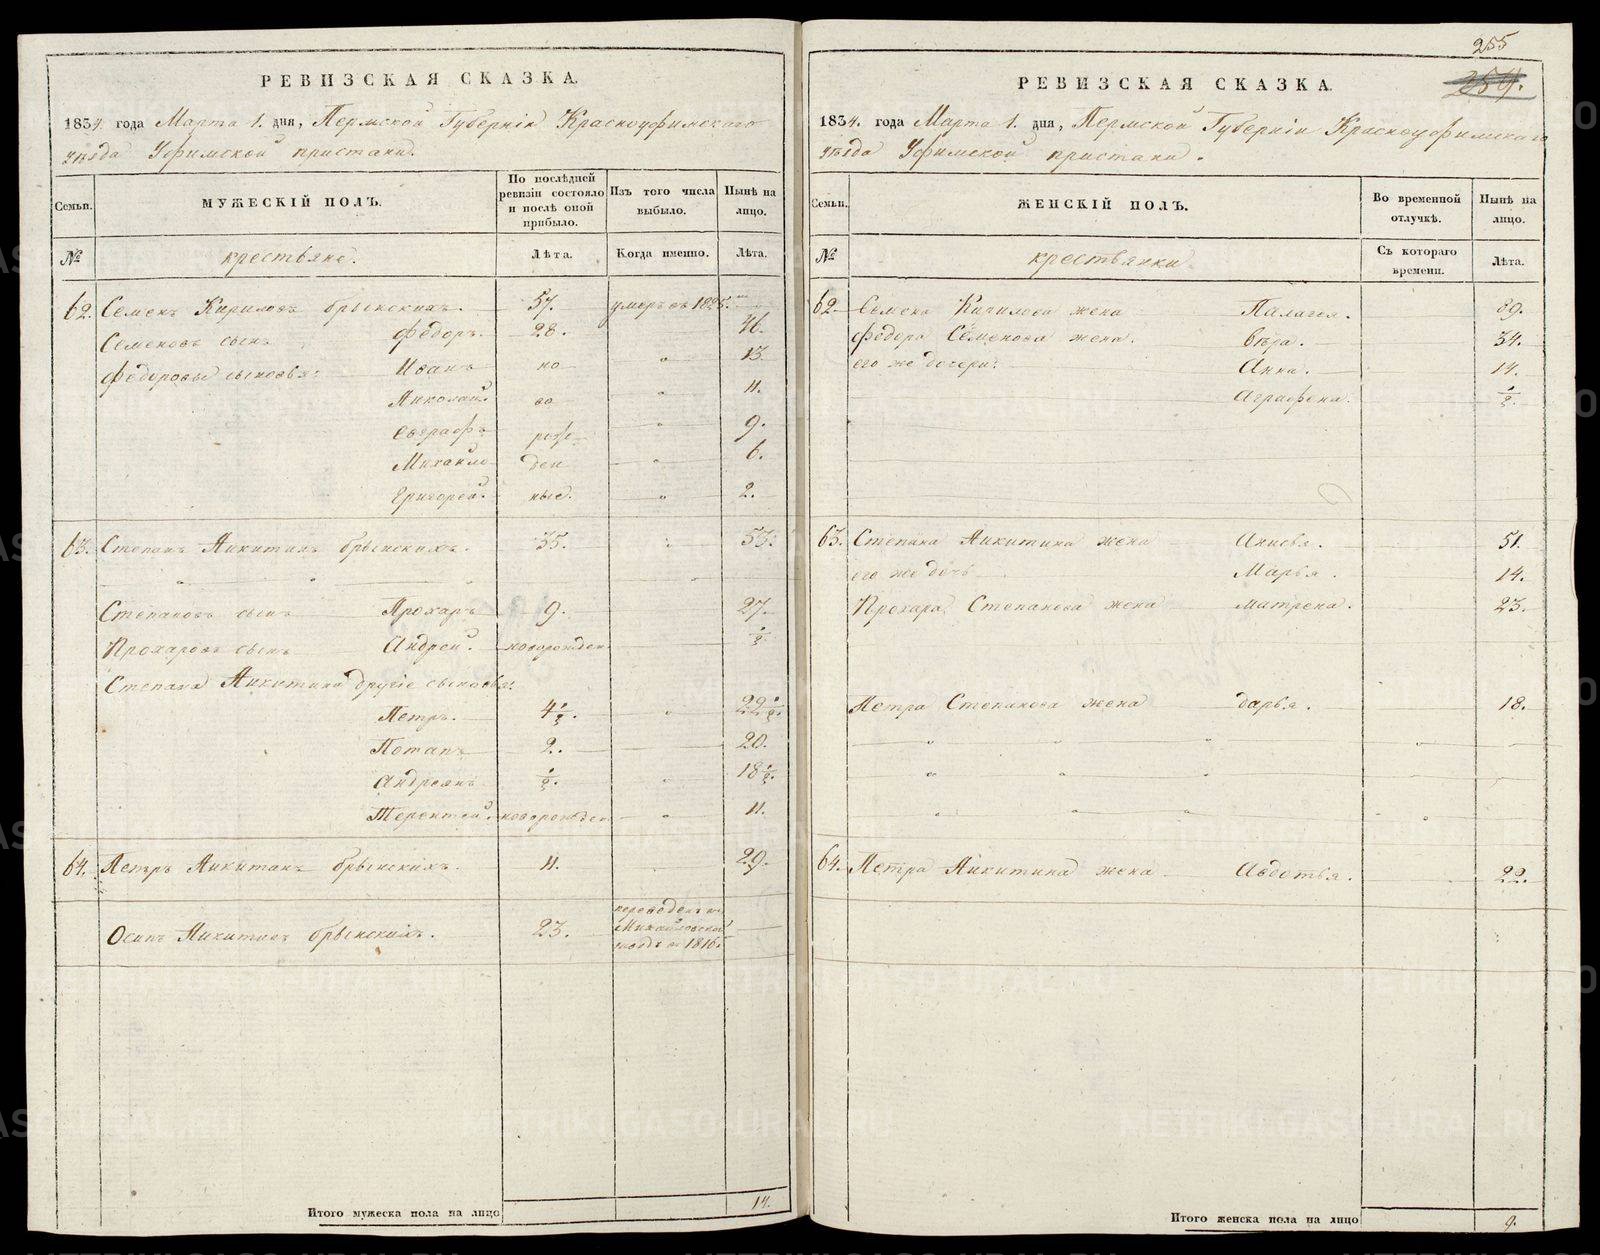 РЕВИЗСКАЯ СКАЗКА.
1834. года Марта 1. дня, Пермской Губерніи Красноуфимскаго
уѣзда Уфимской пристани.
Семьи.
МУЖЕСКІЙ ПОЛЪ.
По послѣдней ревизіи состояло и послѣ оной прибыло.
Изъ того числа выбыло.
Нынѣ на лицо.
№
крестьяне.
Лѣта.
Когда именно.
Лѣта.
62. Семенъ Кириловъ брынскихъ. 57. умеръ въ 1825.
Семеновъ сынъ Федоръ. 28. 46.
Федоровы сыновья: Иванъ но 13
Николай во 11.
Евграфъ рож 9.
Михайло ден 6.
Григорей ные. 2.
63. Степанъ Никитинъ брынскихъ. 35. 53.
Степановъ сынъ Прохаръ 9. 27.
Прохаровъ сынъ Андрей. новорожден ½
Степана Никитина другіе сыновья:
Петръ. 4½. 22½.
Потапъ 2. 20.
Андреянъ ½. 18½.
Терентей новорожден 11.
64. Петръ Никитинъ брынскихъ. 11. 29.
Осипъ Никитинъ брынскихъ. 23. переведенъ въ
Михайловской
заводъ въ 1816.
Итого мужеска пола на лицо 14.
255
254.
РЕВИЗСКАЯ СКАЗКА.
1834. года Марта 1. дня, Пермской Губерніи Красноуфимскаго
уѣзда Уфимской пристани.
Семьи.
ЖЕНСКІЙ ПОЛЪ.
Во временной отлучкѣ.
Нынѣ на лицо.
№
крестьянки.
Съ котораго времени.
Лѣта.
62. Семена Кирилова жена Палагея. 89.
Федора Семенова жена. Вѣра. 34.
его же дочери: Анна. 14.
Аграфена. ½.
63. Степана Никитина жена Анисья. 51.
его же дочь Марья. 14.
Прохара Степанова жена Матрена. 23.
Петра Степанова жена Дарья. 18.
64. Петра Никитина жена Авдотья. 22.
Итого женска пола на лицо 9.
METRIKI.GASO-URAL.RU